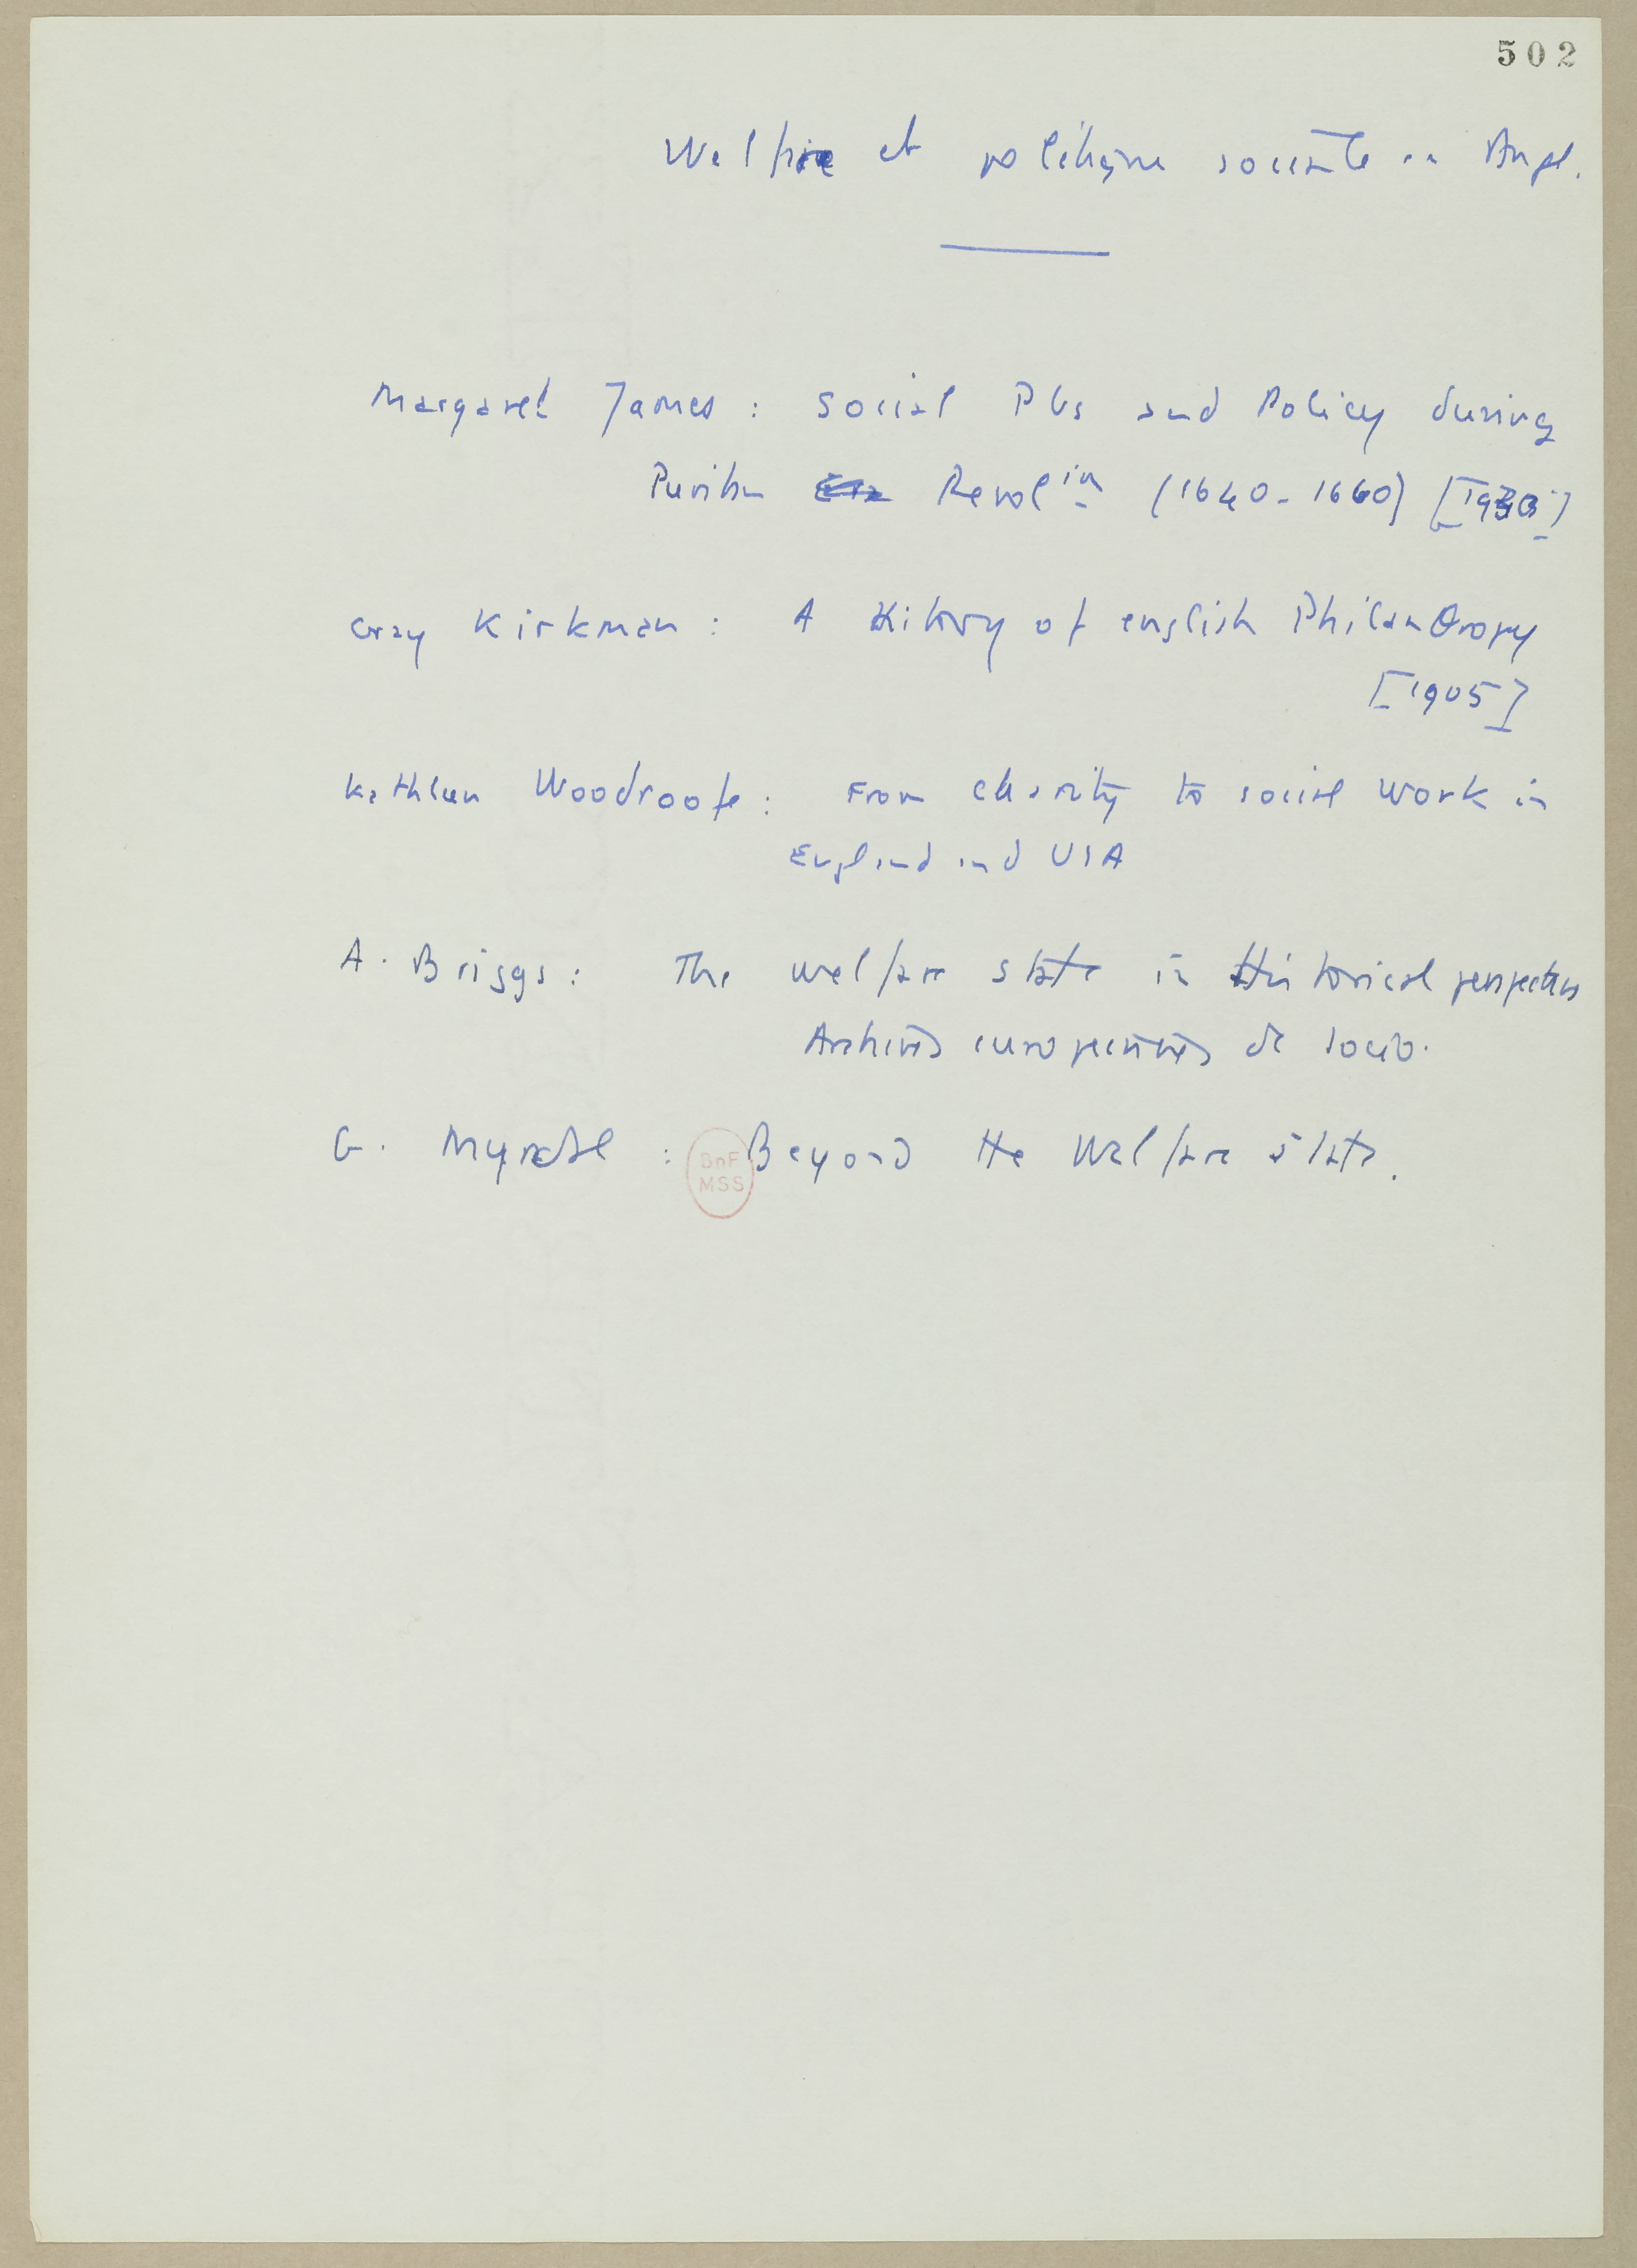 502
Welfare et politique sociale en Angl.
Margaret James : Social Pbs and Policy during
Puritan Revol in (1640-1660) [1930]
Gray Kirkman : A History of english Philanθropy
[1905]
Kathleen Woodroofe : From charity to social work in
England and USA
A. Briggs : The welfare state in Historical perspective
Archives européennes de socio.
G. Myrdal : Beyond the Welfare State.
BnF
MSS